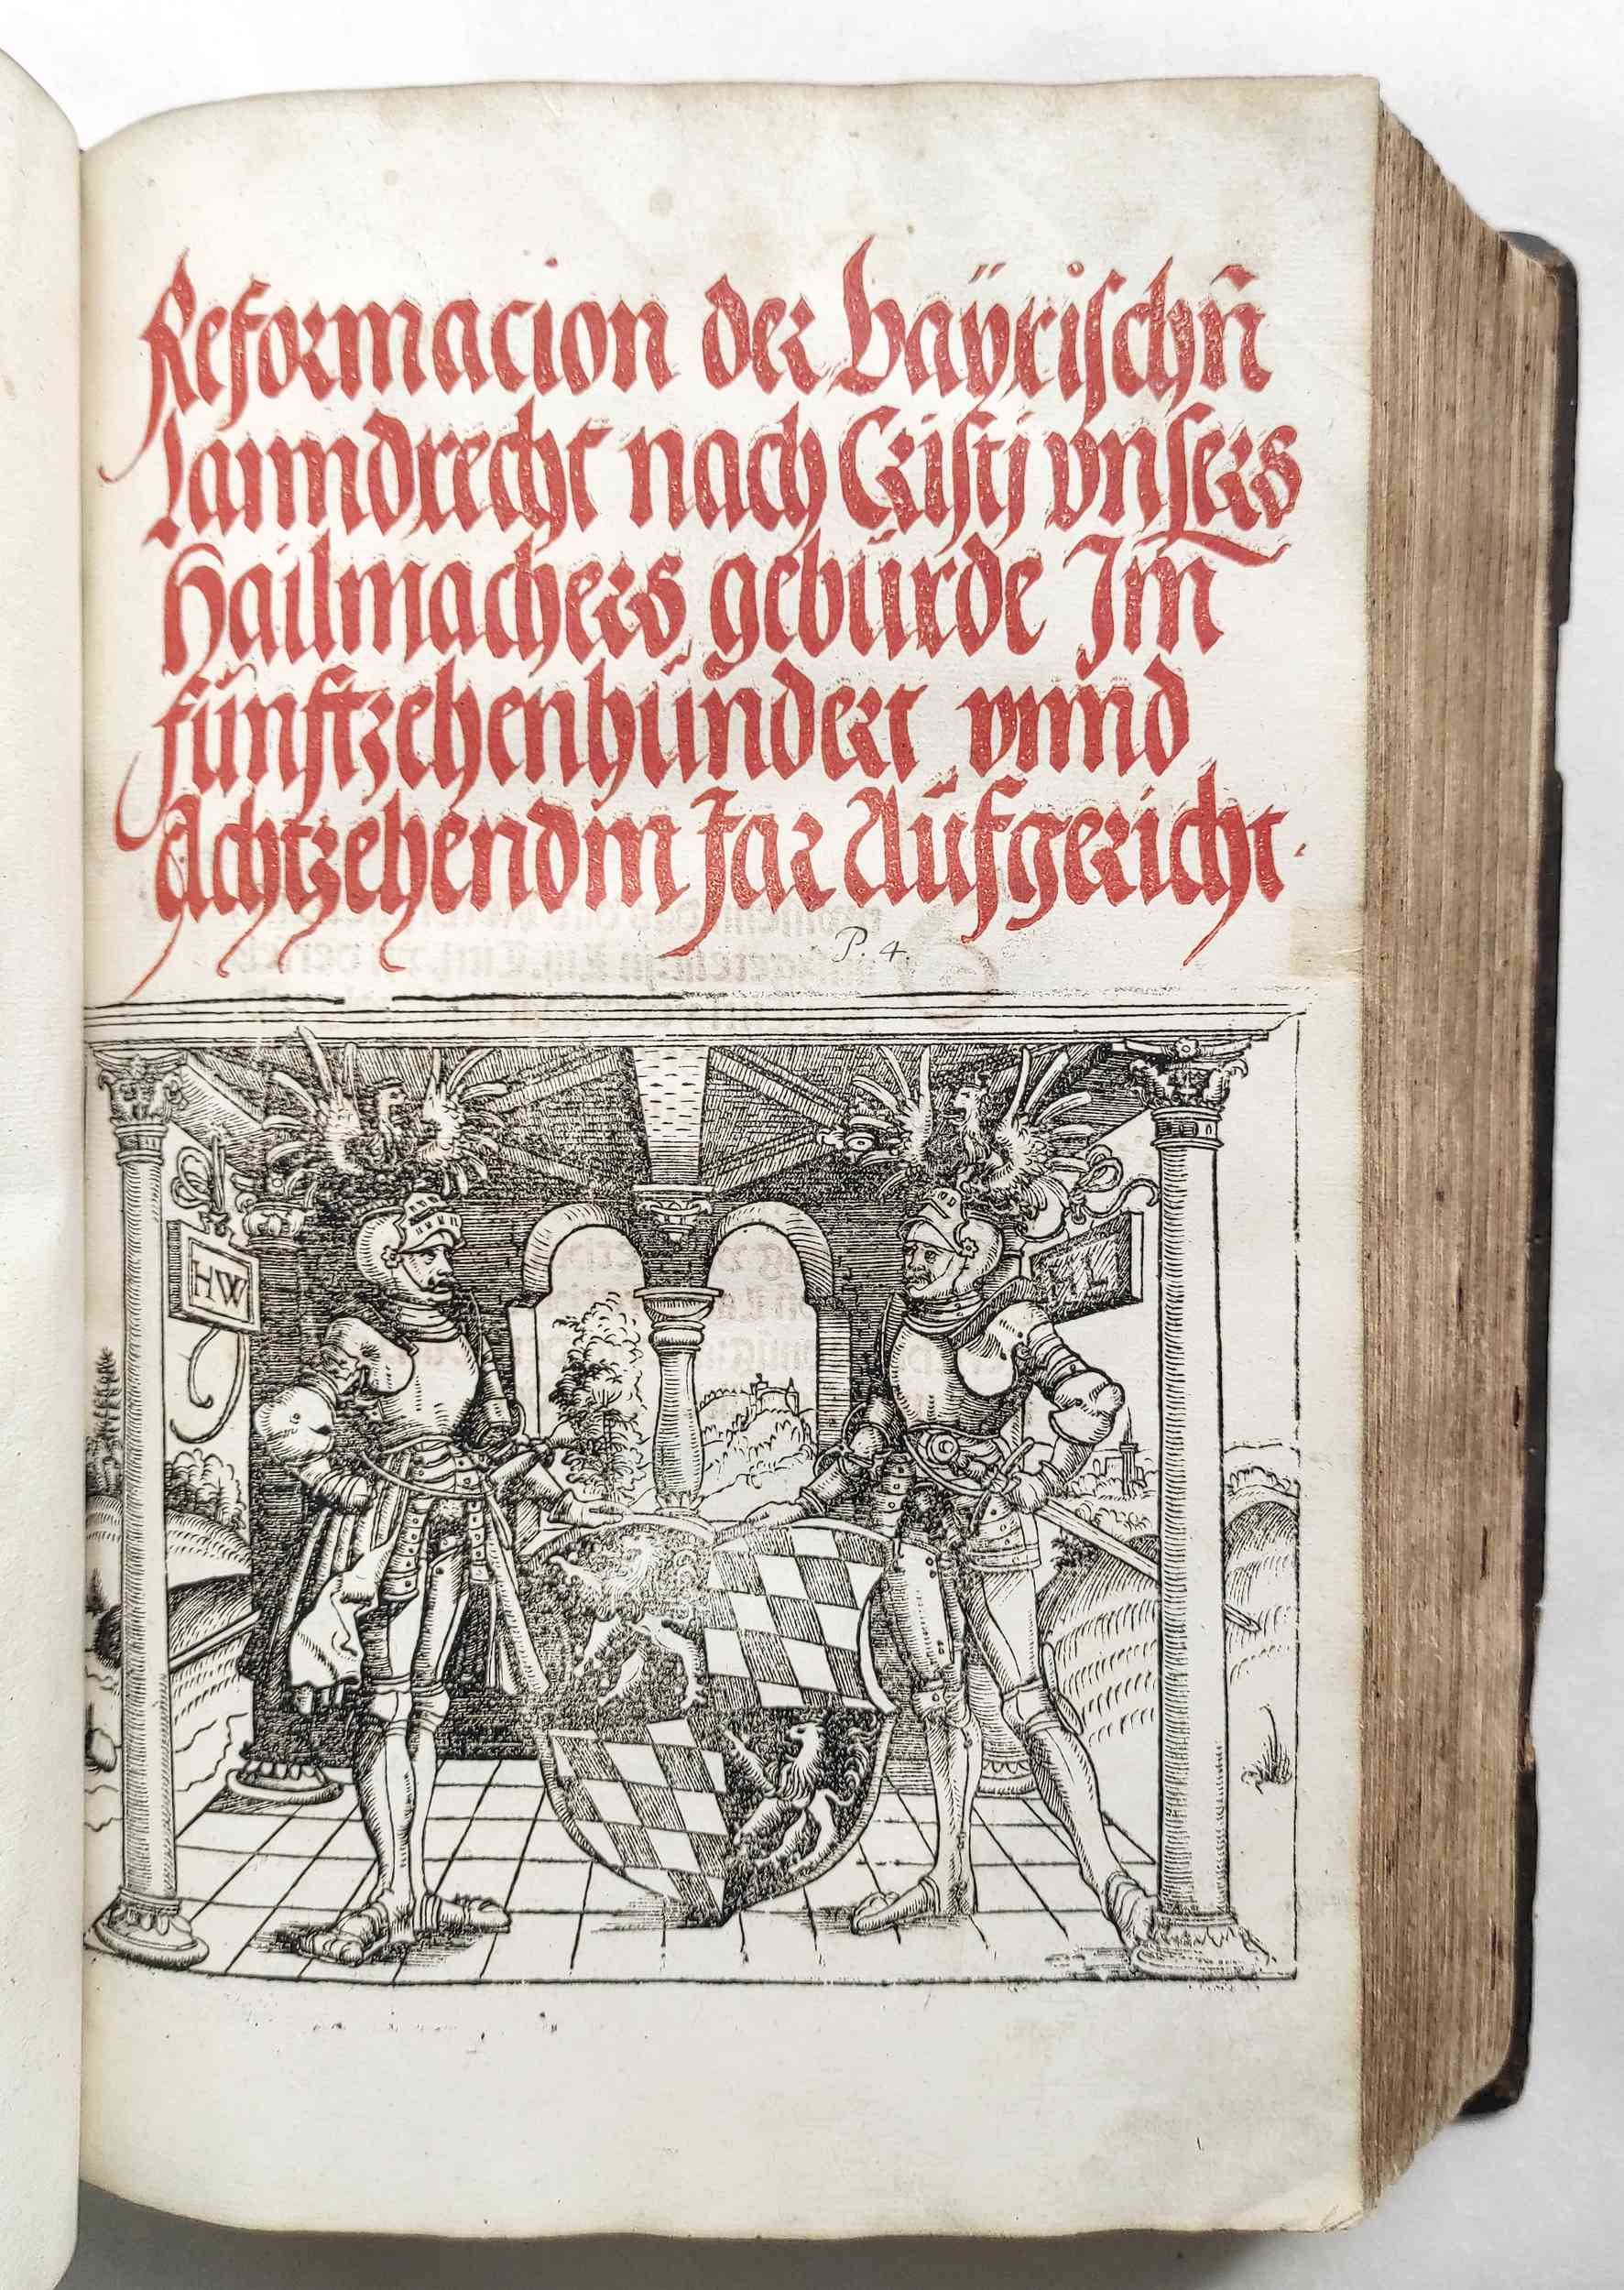 Reformacion der bayrischn̄
Lanndrecht nach Cristj vnsers
Hailmachers gebürde Im
fünftzehenhundert vnnd
Achtzehendm Jar Aufgericht.
P. 4.
HW